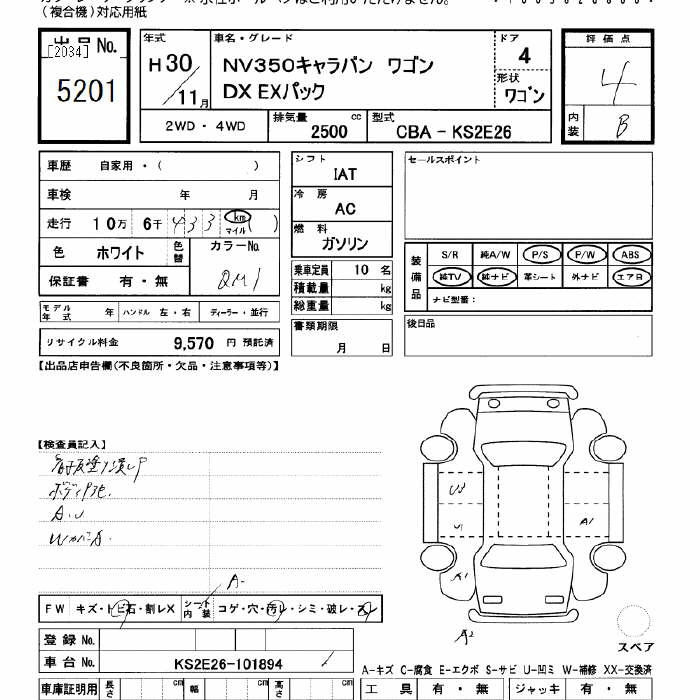 (複合機)対応用紙
出品No.
[2034]
5201
年式
H30
11月
車名・グレード
NV350キャラバン ワゴン
DX EXパック
ドア
4
形状
ワゴン
評価点
4
内装
B
2WD・4WD
排気量
2500 cc
型式
CBA - KS2E26
車歴 自家用・( )
車検 年 月
走行 10万 6千 433 km マイル ( )
色 ホワイト 色替
カラーNo.
QM1
保証書 有・無
モデル年式 年 ハンドル 左・右 ディーラー・並行
リサイクル料金 9,570 円 預託済
シフト
IAT
冷房
AC
燃料
ガソリン
乗車定員 10 名
積載量 kg
総重量 kg
書類期限
月 日
セールスポイント
装備品
S/R 純A/W P/S P/W ABS
純TV 純ナビ 革シート 外ナビ エアB
ナビ型番:
後日品
【出品店申告欄(不良箇所・欠品・注意事項等)】
【検査員記入】
A.U
A-
FW キズ・トビ石・割レX シート内装 コゲ・穴・汚レ・シミ・破レ・スレ
U2
U1
A1
A1
A2
スペア
登録No.
車台No. KS2E26-101894
A-キズ C-腐食 E-エクボ S-サビ U-凹ミ W-補修 XX-交換済
車庫証明用 長さ cm 幅 cm 高さ cm
工具 有・無 ジャッキ 有・無